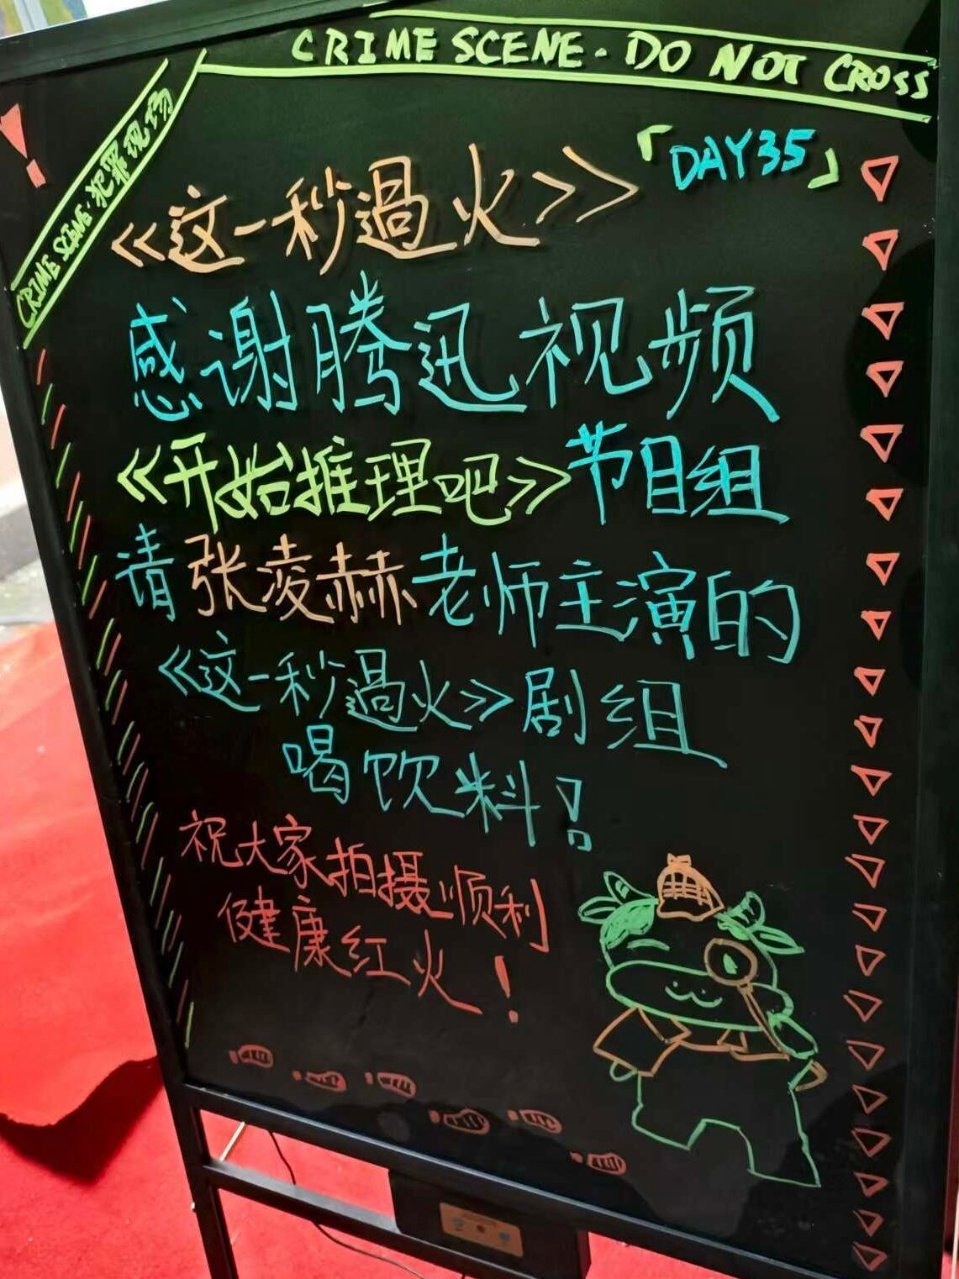 CRIME SCENE · DO NOT CROSS
CRIME SCENE · 犯罪现场
《这一秒過火》「DAY35」
感谢腾迅视频
《开始推理吧》节目组
请张凌赫老师主演的
《这一秒過火》剧组
喝饮料!
祝大家拍摄顺利
健康红火!